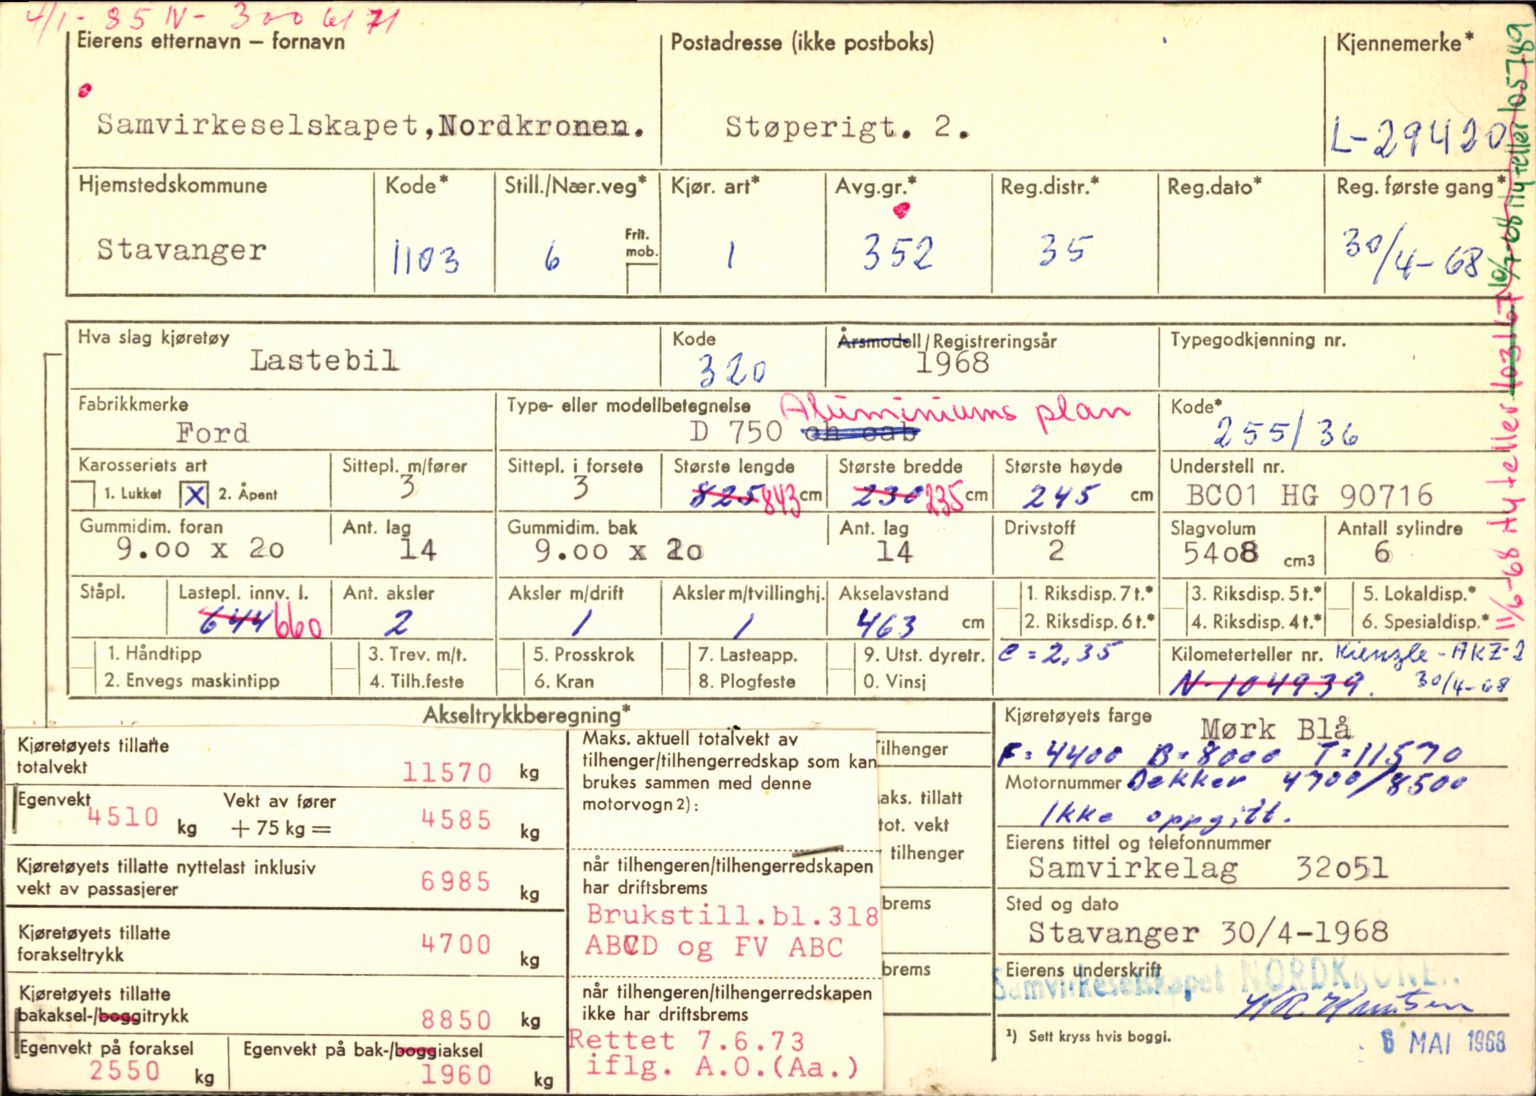 4/1-85 N- 3006171
Eierens etternavn – fornavn
Postadresse (ikke postboks)
Kjennemerke*
Samvirkeselskapet,Nordkronen.
Støperigt. 2.
L-29420
Hjemstedskommune
Kode*
Still./Nær.veg*
Kjør. art*
Avg.gr.*
Reg.distr.*
Reg.dato*
Reg. første gang*
Stavanger
1103
6
Frit. mob.
1
352
35
30/4-68
Hva slag kjøretøy
Kode
Årsmodell/Registreringsår
Typegodkjenning nr.
Lastebil
320
1968
Fabrikkmerke
Type- eller modellbetegnelse
Aluminiums plan
Kode*
Ford
D 750 ch cab
255/36
Karosseriets art
Sittepl. m/fører
Sittepl. i forsete
Største lengde
Største bredde
Største høyde
Understell nr.
1. Lukket X 2. Åpent
3
3
825 843 cm
230 235 cm
245 cm
BC01 HG 90716
Gummidim. foran
Ant. lag
Gummidim. bak
Ant. lag
Drivstoff
Slagvolum
Antall sylindre
9.00 x 20
14
9.00 x 20
14
2
5408 cm3
6
Ståpl.
Lastepl. innv. l.
Ant. aksler
Aksler m/drift
Aksler m/tvillinghj.
Akselavstand
1. Riksdisp. 7 t.*
3. Riksdisp. 5 t.*
5. Lokaldisp.*
644 660
2
1
1
463 cm
2. Riksdisp. 6 t.*
4. Riksdisp. 4 t.*
6. Spesialdisp.*
1. Håndtipp
3. Trev. m/t.
5. Prosskrok
7. Lasteapp.
9. Utst. dyretr.
e = 2,35
Kilometerteller nr. Kienzle - AKZ-2
2. Envegs maskintipp
4. Tilh.feste
6. Kran
8. Plogfeste
0. Vinsj
N-104939. 30/4-68
Akseltrykkberegning*
Kjøretøyets farge
Mørk Blå
F=4400 B=8000 T=11570
Motornummer Dekker 4700/8500
Ikke oppgitt.
Eierens tittel og telefonnummer
Samvirkelag 32051
Sted og dato
Stavanger 30/4-1968
Eierens underskrift
Samvirkeselskapet NORDKRONEN
1) Sett kryss hvis boggi.
6 MAI 1968
Kjøretøyets tillatte
totalvekt
11570 kg
Egenvekt
4510 kg
Vekt av fører
+ 75 kg =
4585 kg
Kjøretøyets tillatte nyttelast inklusiv
vekt av passasjerer
6985 kg
Kjøretøyets tillatte
forakseltrykk
4700 kg
Kjøretøyets tillatte
bakaksel-/boggitrykk
8850 kg
Egenvekt på foraksel
2550 kg
Egenvekt på bak-/boggiaksel
1960 kg
Maks. aktuell totalvekt av
tilhenger/tilhengerredskap som kan
brukes sammen med denne
motorvogn 2):
når tilhengeren/tilhengerredskapen
har driftsbrems
Brukstill.bl.318
ABCD og FV ABC
når tilhengeren/tilhengerredskapen
ikke har driftsbrems
Rettet 7.6.73
iflg. A.O.(Aa.)
Tilhenger
aks. tillatt
tot. vekt
tilhenger
brems
brems
11/6-68 Ny teller 103167
10/7-68 Ny teller 105789